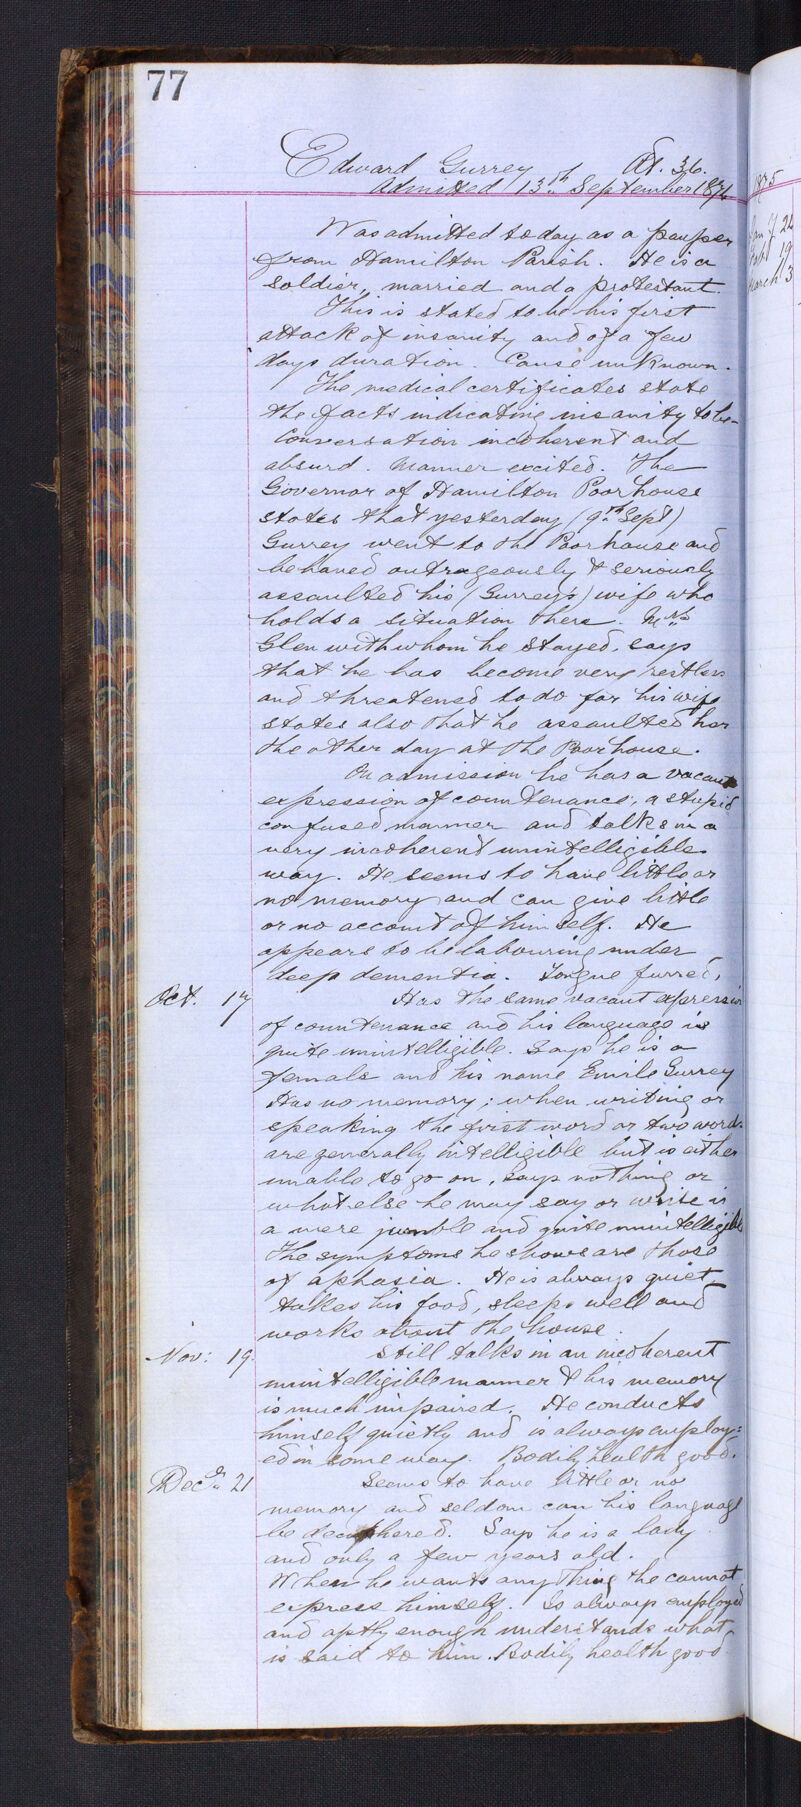 77
Edward Gurrey Æt. 36.
Admitted 13th September 1874
Was admitted today as a pauper
from Hamilton Parish. He is a
soldier, married and a protestant.
This is stated to be his first
attack of insanity and of a few
days duration. Cause unknown.
The medical certificates state
the facts indicating insanity to be—
Conversation incoherent and
absurd. Manner excited. The
Governor of Hamilton Poorhouse
states that yesterday (9th Sept)
Gurrey went to the Poorhouse and
behaved outrageously & seriously
assaulted his (Gurreys) wife who
holds a situation there. Mrs
Glen with whom he stayed, says
that he has become very restless
and threatened to do for his wife
states also that he assaulted her
the other day at the Poorhouse.
On admission he has a vacant
expression of countenance, a stupid
confused manner and talks in a
very incoherent unintelligible
way. He seems to have little or
no memory and can give little
or no account of himself. He
appears to be labouring under
deep dementia. Tongue furred.
Oct. 17 Has the same vacant expression
of countenance and his language is
quite unintelligible. Says he is a
female and his name Emile Gurrey
Has no memory; when writing or
speaking the first word or two words
are generally intelligible but is either
unable to go on, says nothing or
what else he may say or write is
a mere jumble and quite unintelligible
The symptoms he shows are those
of aphasia. He is always quiet,
takes his food, sleeps well and
works about the house.
Nov: 19. Still talks in an incoherent
unintelligible manner & his memory
is much impaired. He conducts
himself quietly and is always employ=
ed in some way. Bodily health good.
Decr 21 Seems to have little or no
memory and seldom can his language
be deciphered. Says he is a lady
and only a few years old.
When he wants any thing he cannot
express himself. Is always employed
and aptly enough understands what
is said to him. Bodily health good
1875
24
19
March 3